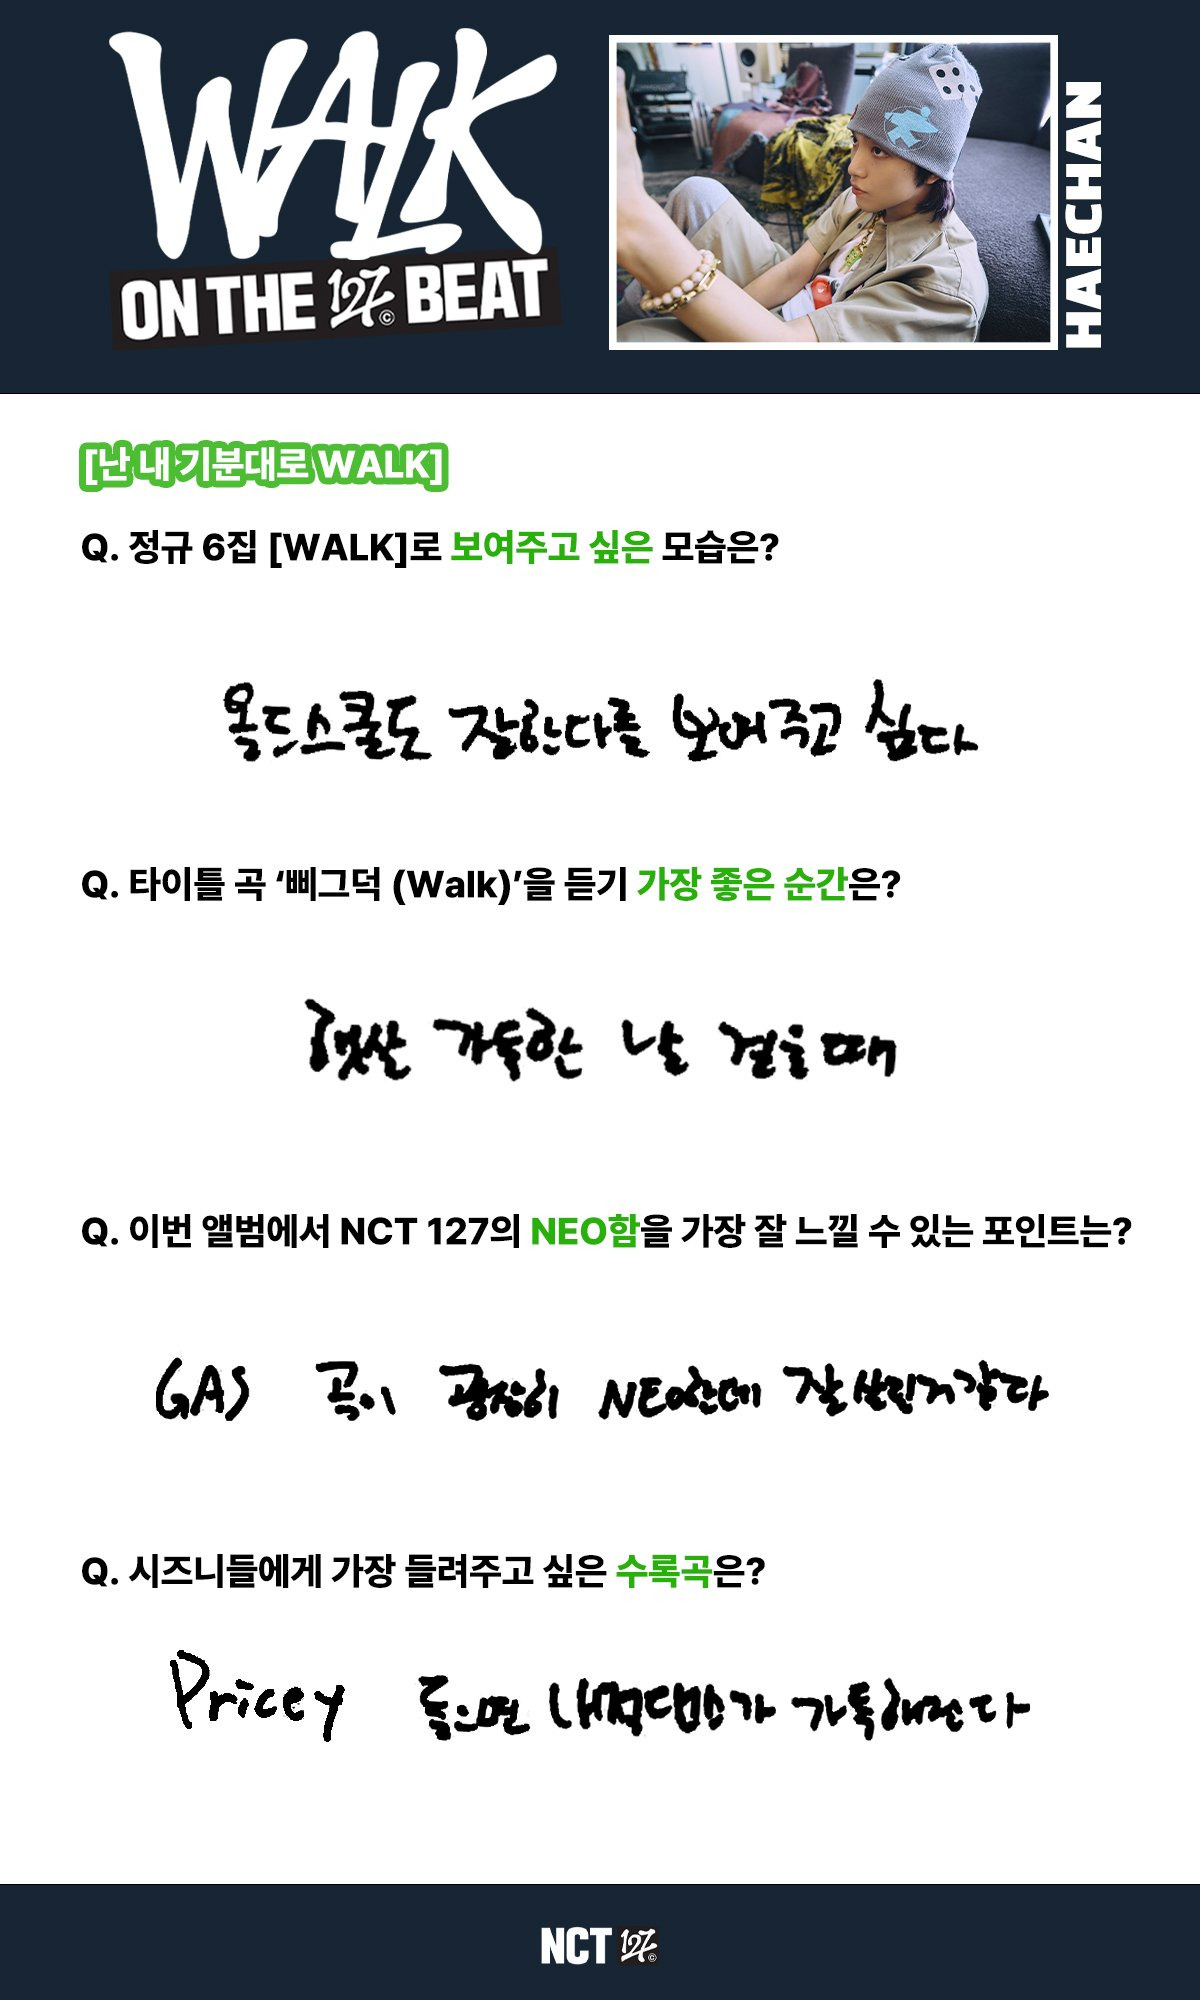 WALK
ON THE 127 © BEAT
HAECHAN
[난 내 기분대로 WALK]
Q. 정규 6집 [WALK]로 보여주고 싶은 모습은?
올드스쿨도 잘한다를 보여주고 싶다
Q. 타이틀 곡 ‘삐그덕 (Walk)’을 듣기 가장 좋은 순간은?
햇살 가득한 날 걸을때
Q. 이번 앨범에서 NCT 127의 NEO함을 가장 잘 느낄 수 있는 포인트는?
GAS 곡이 굉장히 NEO한데 잘 살린거같다
Q. 시즈니들에게 가장 들려주고 싶은 수록곡은?
Pricey 들으면 내적댄스가 가득해진다
NCT 127 ©